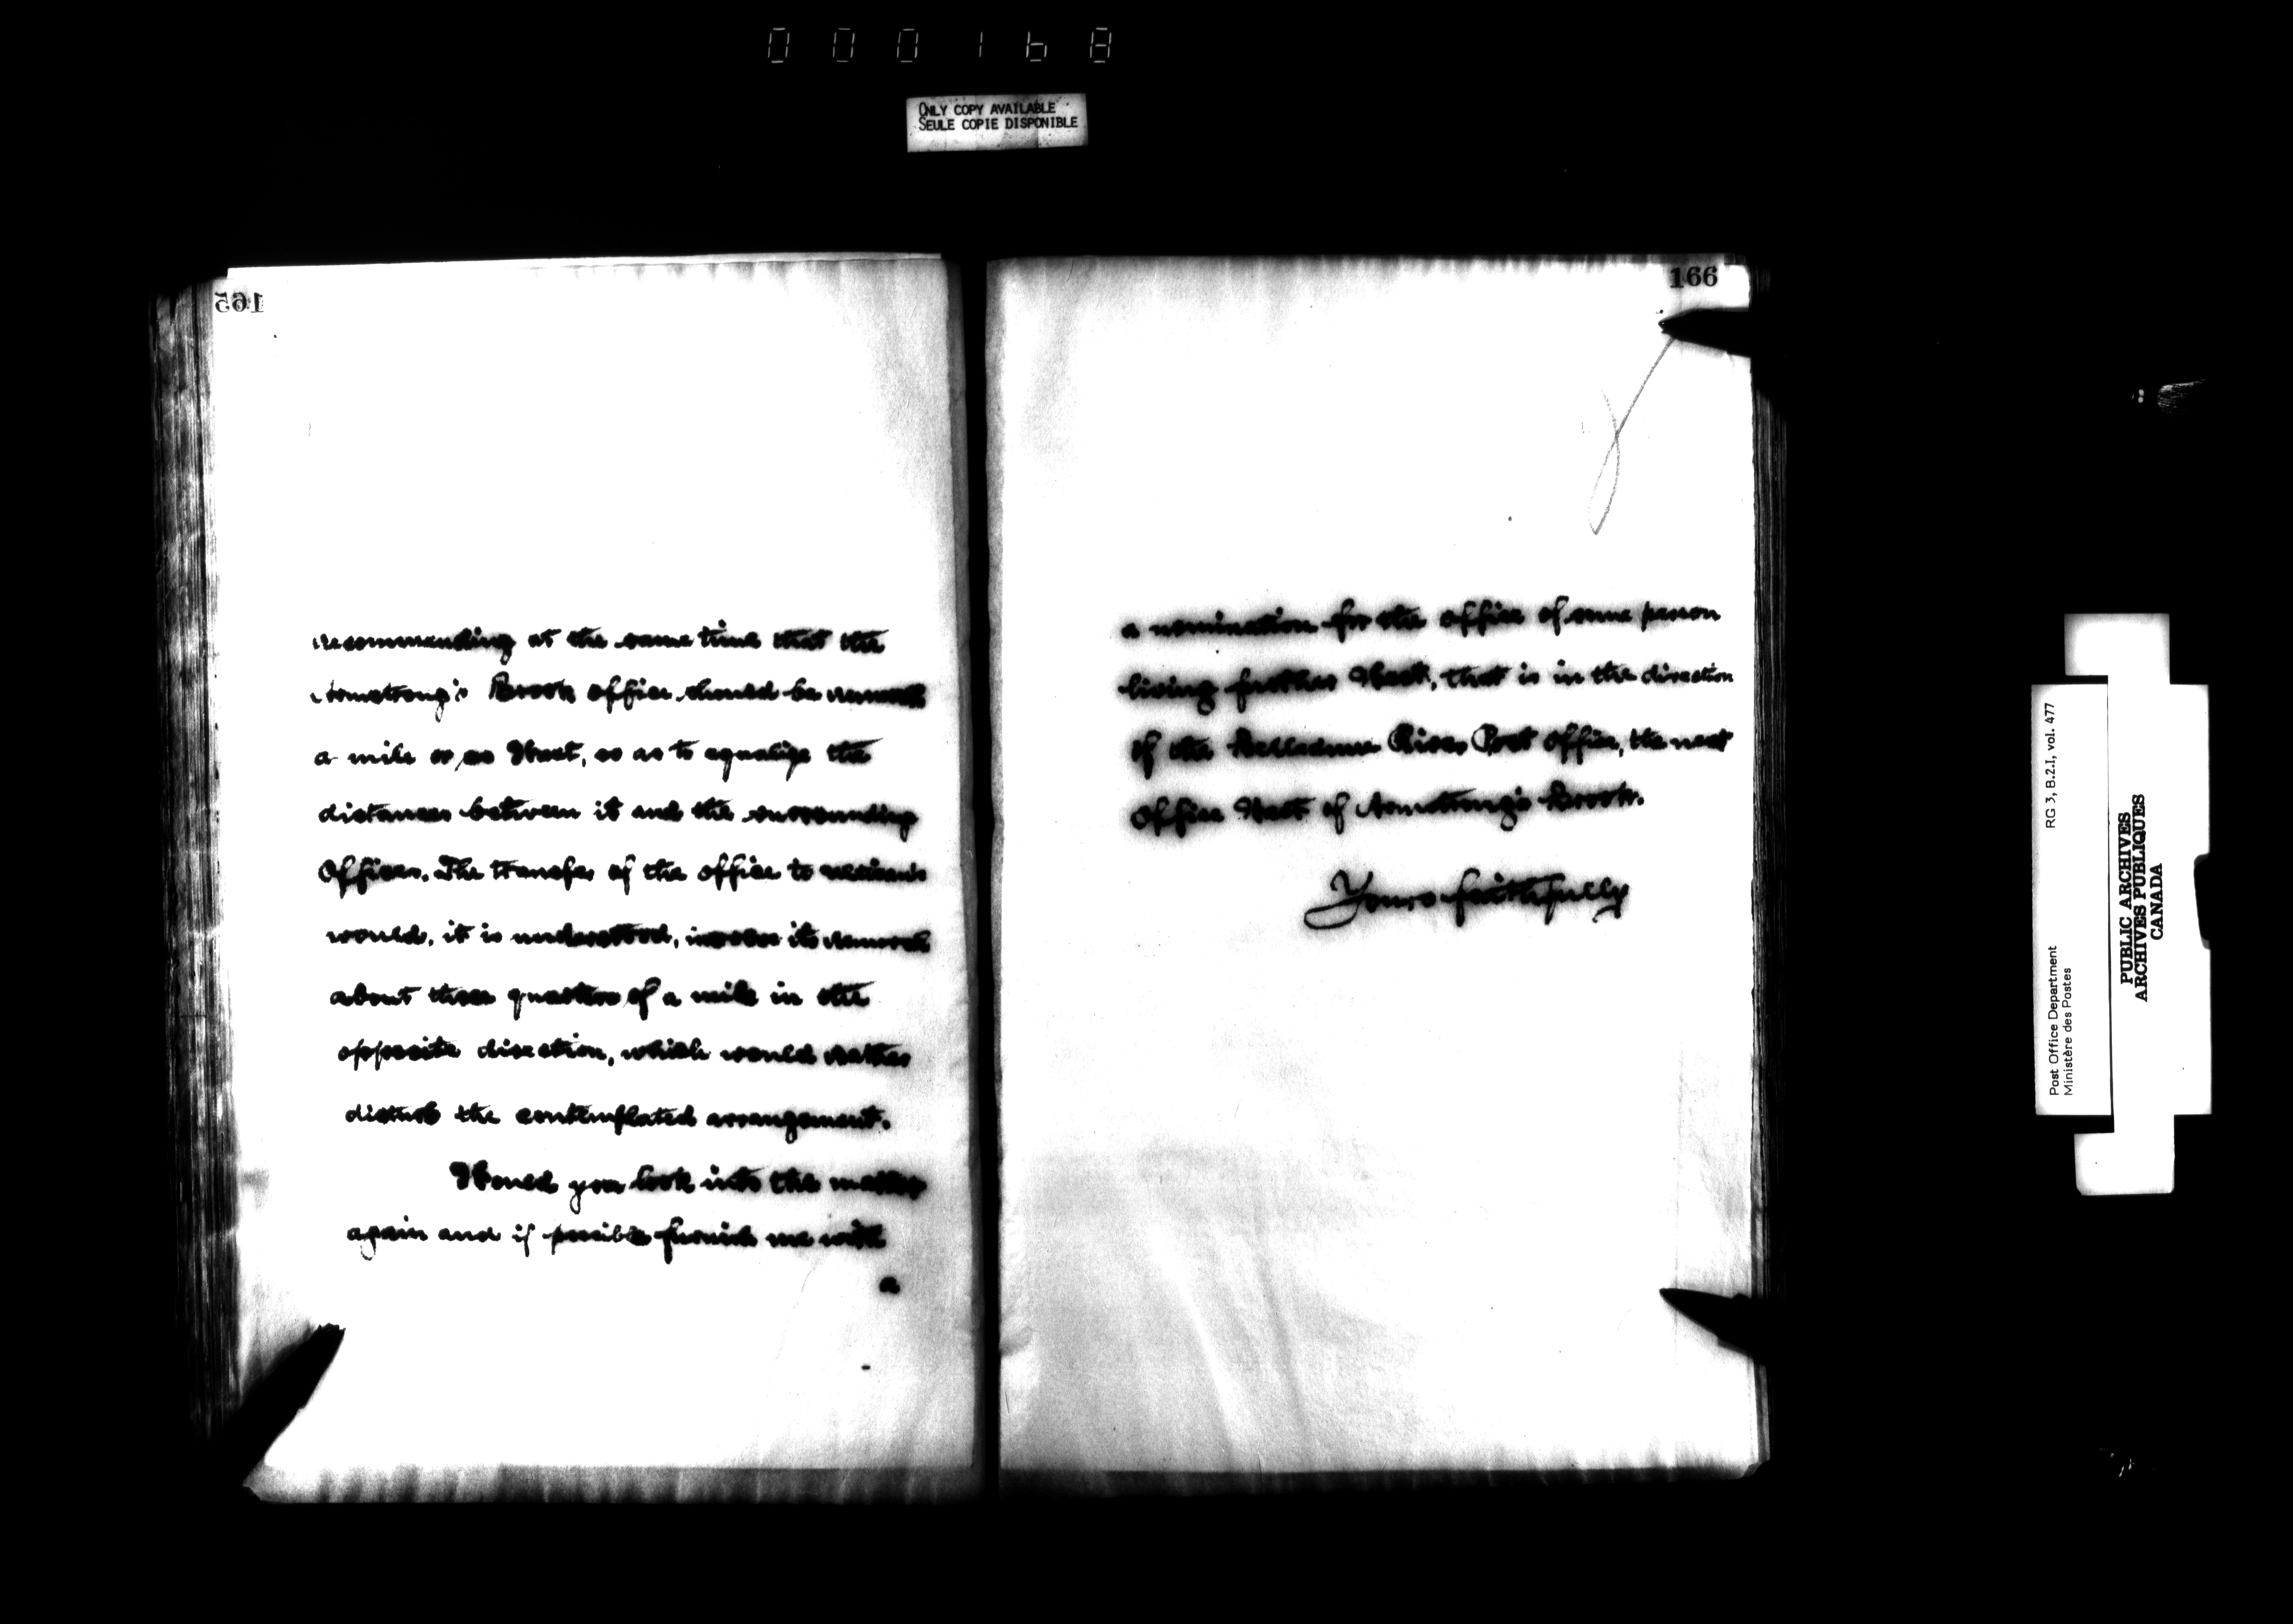 000168
ONLY COPY AVAILABLE
SEULE COPIE DISPONIBLE
165
recommending at the same time that the
Armstrong's Brook office should be removed
a mile or so West, so as to equalize the
distances between it and the surrounding
Offices. The transfer of the office to
would, it is understood, involve its removal
about three quarters of a mile in the
opposite direction, which would rather
disturb the contemplated arrangement.
Would you look into the matter
again and if possible furnish me with
a
166
a nomination for the office of some person
living further West, that is in the direction
of the Belledune River Post Office, the next
Office West of Armstrong's Brook.
Yours faithfully
Post Office Department
Ministère des Postes
RG 3, B.2.I, vol. 477
PUBLIC ARCHIVES
ARCHIVES PUBLIQUES
CANADA